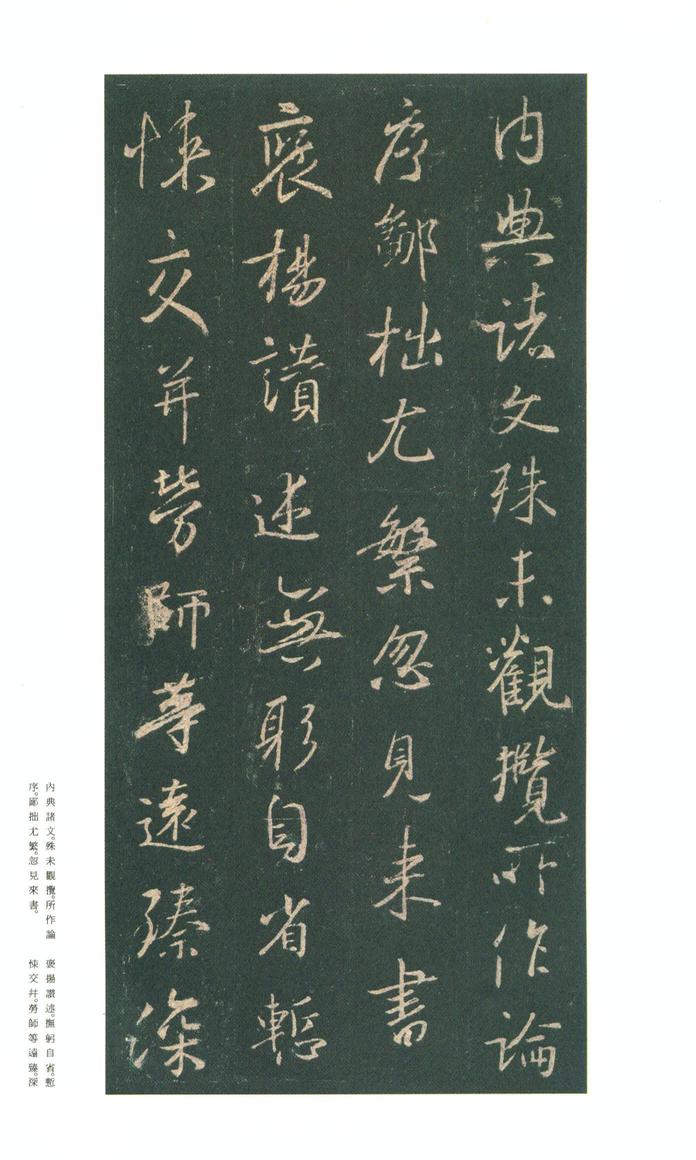 內典諸文殊未觀攬所作論
序鄙拙尤繁忽見來書
褒揚讚述無躬自省慙
悚交并勞師等遠臻深
內典諸文。殊未觀攬。所作論
序。鄙拙尤繁。忽見來書。
褒揚讚述。撫躬自省。慙
悚交并。勞師等遠臻。深